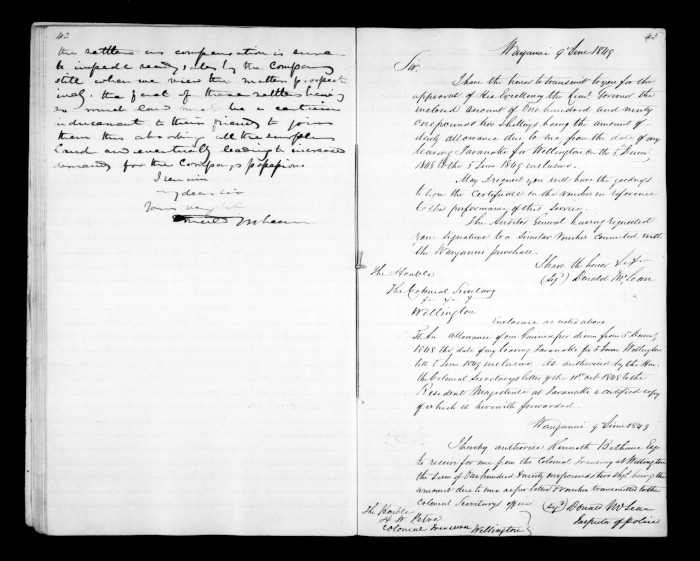 42
the settlers as compensation is sure
to impede ready sales by the Company
still when we view the matter prospect
ively. the fact of these settlers having
so much land must be a certain
inducement to their friends to join
them thus absorbing all the surplus
land and eventually leading to increased
demand for the Company's
I remain
my dear sir
Yours very
Donald McLean
43
Wanganui 9 June 1849
Sir,
I have the honor to transmit to you for the
approval of His Excellency the Lieut. Governor the
inclosed account of One hundred and ninty
one pounds two shillings being the amount of
daily allowance due to me from the date of my
leaving Taranaki for Wellington on the 5 Decem.
1848 to the 5 June 1849 inclusive.
May I request you will have the goodness
to sign the Certificate on the voucher in reference
to the performance of this service.
The Auditor General having requested
your signature to a similar voucher connected with
the Wanganui purchase.
I have the honor &c &c
(Sg.) Donald McLean
The Honble
The Colonial Secretary
&c &c &
Wellington
Enclosure as noted above
To An allowance of one Pound per diem from 5 Decem.
1848 the date of my leaving Taranaki for Wellington
till 5 June 1849 inclusive as authorized by the Hon.
the Colonial Secretary's letter of the 11 Oct 1848 to the
Resident Magistrate at Taranaki a certified copy
of which is herewith forwarded.
Wanganui 9 June 1849
I hereby authorise Kenneth Bethune Esq
to receive for me from the Colonial Treasury at Wellington
the Sum of One hundred & ninty one pounds two Shgs. being the
amount due to me as per letter & voucher transmitted to the
Colonial Secretary's office
(Sg.) Donald McLean
Inspector of police
The Honble
H W Petre
Colonial Treasurer Wellington